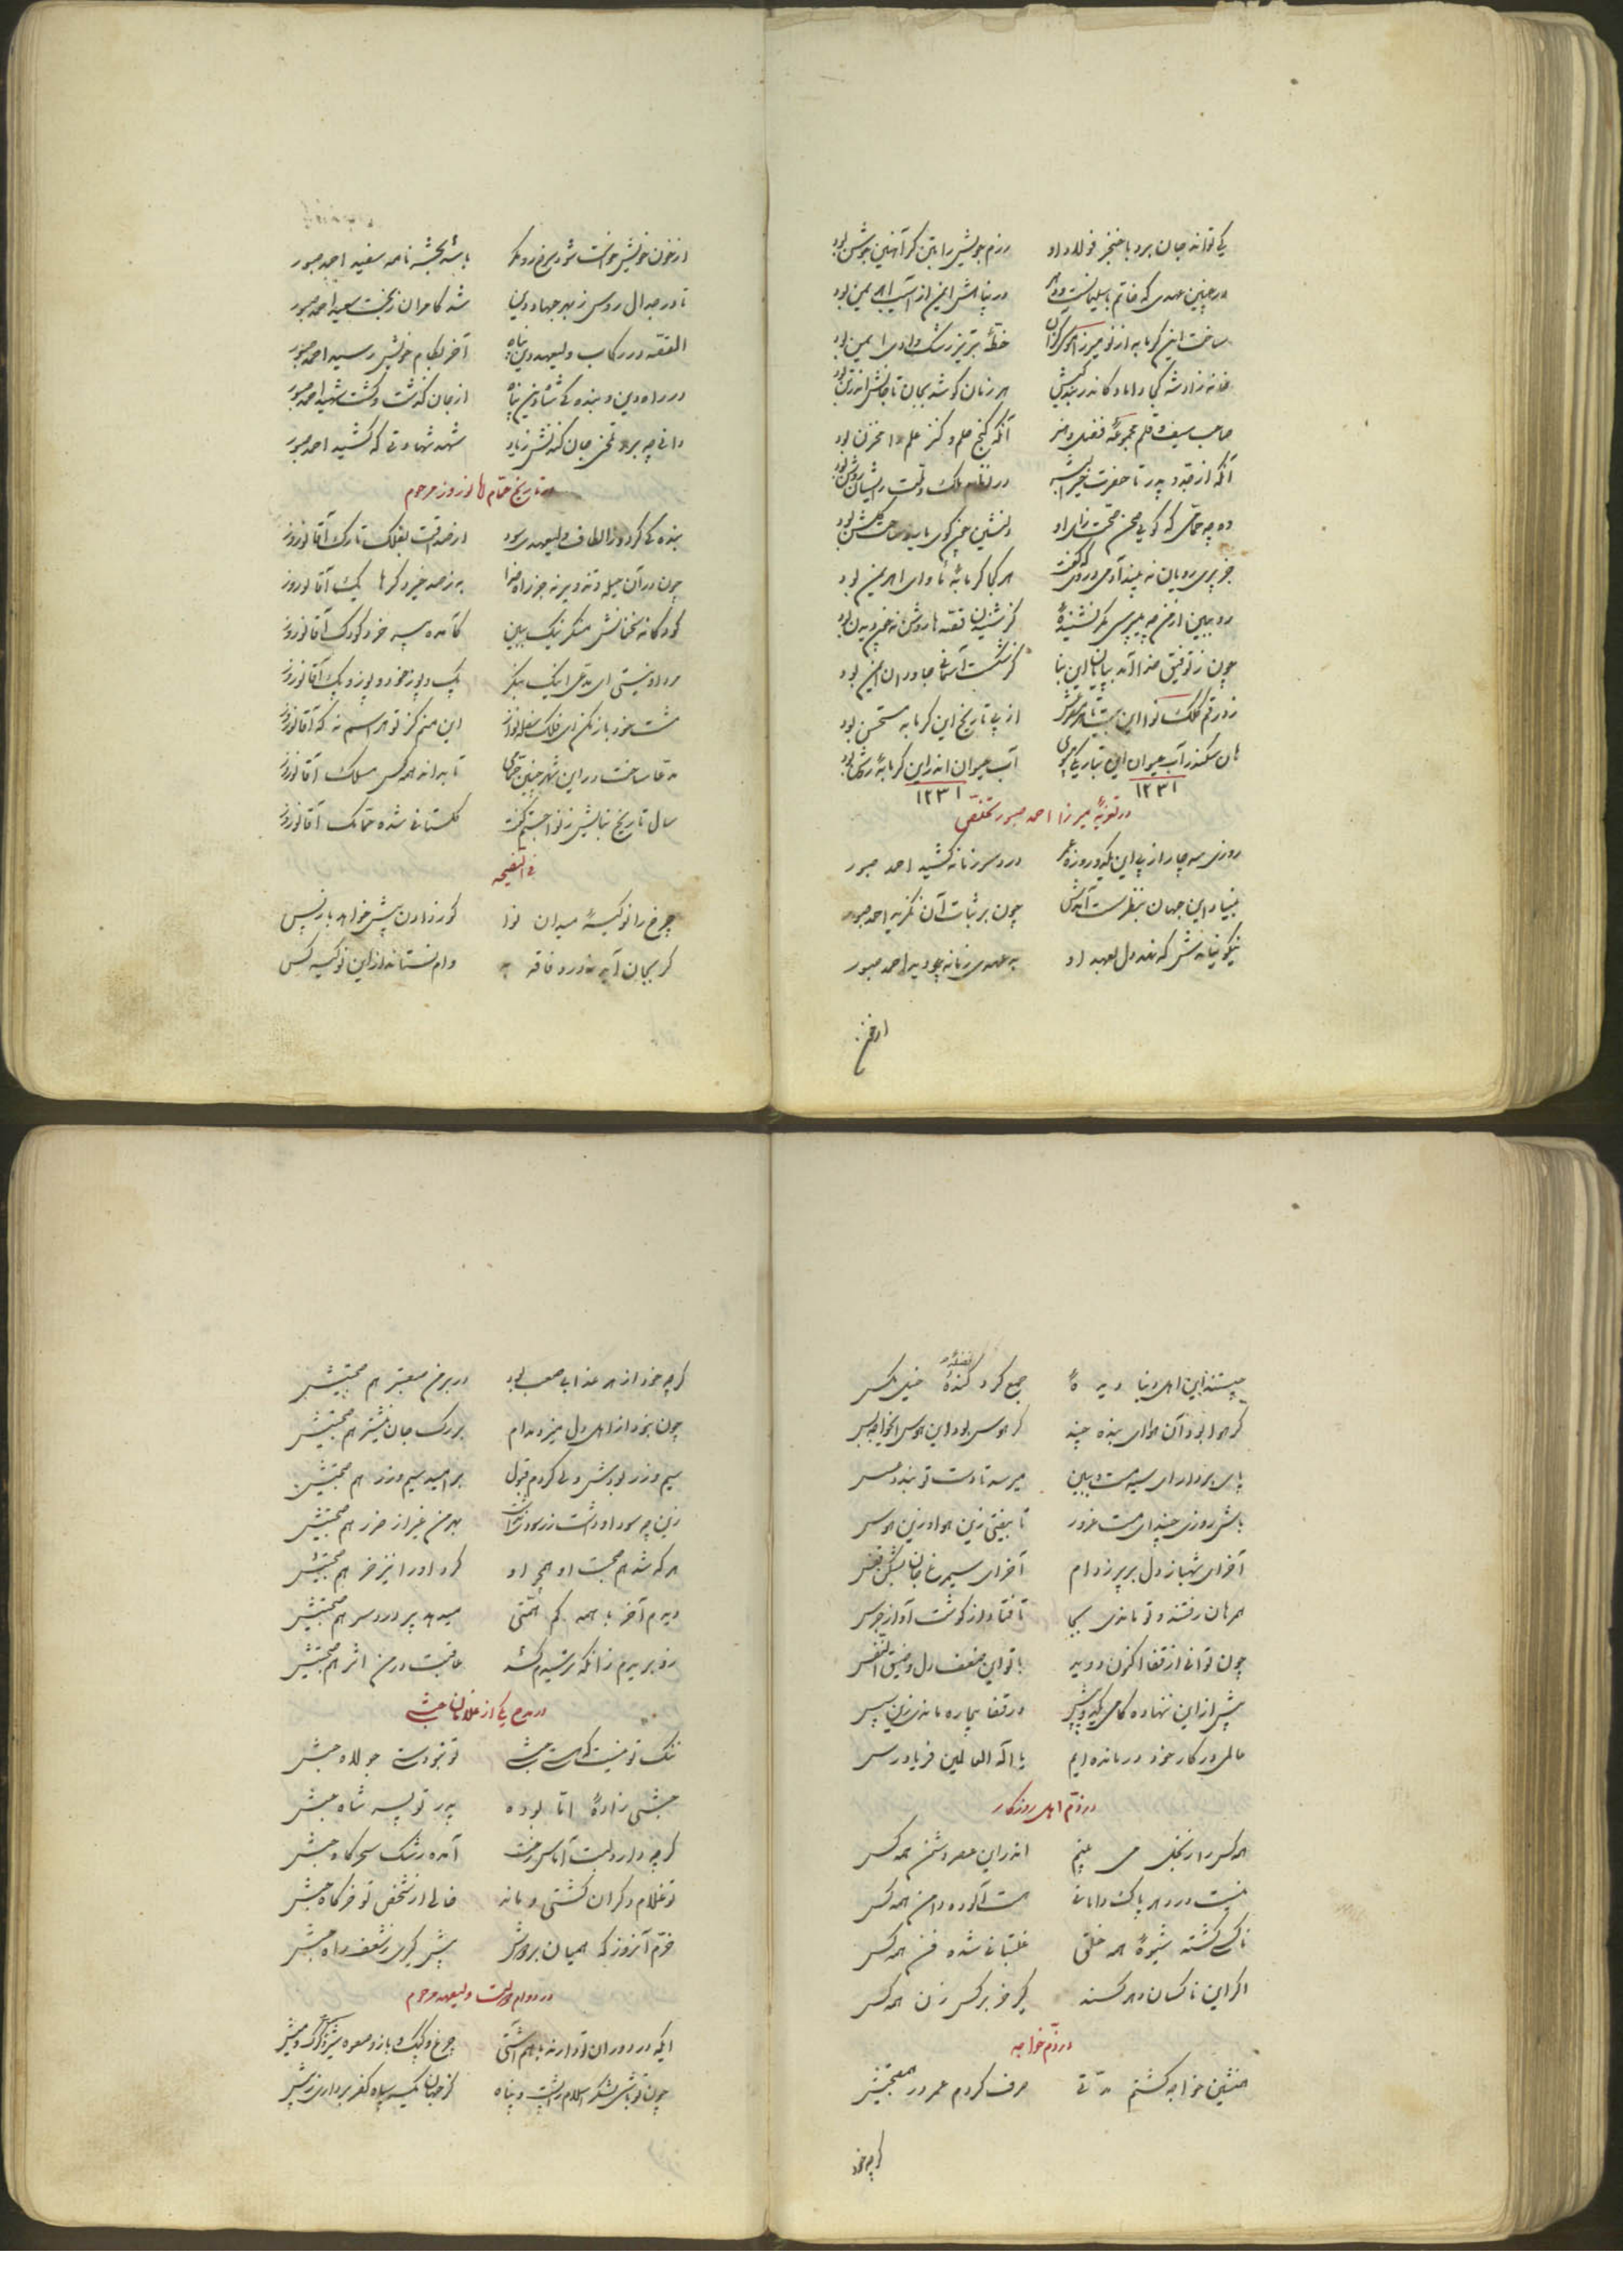 کی تواند جان برد با خنجر فولاد او رزم جویش را بتن گر آهنین جوشن بود
در چنین عهدی که خاتم با سلیمانیست در پناهش ایمن از آسیب اهریمن بود
ساخت این گرمابه از نو میرزا خطهٔ تبریز رشک وادی ایمن بود
خانه زاد شه هر زمان گو شه بجان
صاحب سیف و قلم مجموعهٔ فضل و هنر آنکه گنج علم و کنز علم را مخزن بود
آنکه از جد و پدر تا حضرت خیر البشر در نظام ملک و ملت
ده چه حمامی که گویی صحن صحت زای او دلنشین
جز پری رویان نه بیند آدمی هر کجا گرمابهٔ مأوای اهریمن بود
رو ببین از من چه میپرسی مگر نشنیدهٔ گر شنیدن قصه ها روشن نه چون دیدن بود
چون ز توفیق خدا آمد بپایان این بنا گر شکست آسمانی جاودان ایمن بود
زد رقم کلک نوا این بیت از پی تاریخ این گرمابه مستحسن بود
هان سکندر آب حیوان آب حیوان اندر این گرمابهٔ روشن بود
۱۲۳۱ ۱۲۳۱
در تعزیهٔ میرزا احمد صبور تخلص
روزی سه چار از پی این یکدو روزه عمر درد سر زمانه کشید احمد صبور
بنیاد این جهان بنظر سست آمدش چون بر ثبات آن نگرید احمد صبور
نیکو بنا نهش که نهد دل بعهد او بد عهدی زمانه چو دید احمد صبور
از خون
از خون خویش خواست شود سرخ رو مگر باشد بحشر نامه سفید احمد صبور
تا در جدال روس ز بهر جهاد دین شد کامران ز بخت سعید احمد صبور
القصه در رکاب ولیعهد دین پناه آخر بکام خویش رسید احمد صبور
در راه دین و بنده گی شاه دین پناه از جان گذشت و گشت شهید احمد صبور
دانی چه برد تلخی جان کندنش ز یاد شهد شهادتی که کشید احمد صبور
در تاریخ حمام آقا نوروز مرحوم
بنده گی کرد و ز الطاف ولیعهدی سود از صداقت بفلک تارک آقا نوروز
چون در آن حیله و تزویر نه جز راه خدا به ز صد خیر دگرها یک آقا نوروز
کودکانه سخنانش منگر نیک ببین کآمده پیر خرد کودک آقا نوروز
مرد او نیستی ای مدعی اینک بنگر
مشت خود باز مکن ای فلک شعله فروز این منم کز تو هراسم نه که آقا نوروز
مدعا ساخت در این شهر چنین حمامی تا بدانند همه کس مسلک آقا نوروز
سال تاریخ بنایش ز نوا جستم گفت گلستانی شده حمامک آقا نوروز
فی النصیحه
چرخ را نو کیسهٔ میدان نوا کو ز دادن پیش خواهد باز پس
گر بجان آید ز درد فاقه به وام نستاند از این نو کیسه کس
چیستند این اهل دنیا و جمع گرد گندهٔ فضله خیل مگس
گر هوا بود آن هوای بنده چند گر هوس بود این هوس ای خواجه بس
پای بردار ای سیه مست و ببین میرسد تا دست تو بندد عسس
باش روزی چند ای مست غرور تا بیفتی زین هوا و زین هوس
آخر ای شهباز دل بر پر ز دام آخر ای سیمرغ جان بشکن قفس
همرهان رفتند و تو ماندی بجا تا فتاد از گوشت آواز جرس
چون توانی از قفا اکنون دوید با تو این ضعف دل و ضیق النفس
پیش از این ننهاده گامی در قفا بیچاره ماندی زین سپس
مالی در کار خود درمانده ایم یا اله العالمین فریاد رس
در ذم اهل روزگار
همه کس را بخلی می بینم اندر این عصر دشمن همه کس
نیست در دهر پاک دامانی هست آلوده دامن همه کس
ناکسی گشته شیوهٔ همه خلق غلتبانی شده فن همه کس
اگر این ناکسان دهر کسند کیر خر بر کس زن همه کس
در ذم خواجه
همنشین خواجه گشتم مدتی صرف کردم عمر در هم صحبتیش
گرچه خود
گرچه خود از هر عذابی صعب بود در بر من معتبر هم صحبتیش
چون نبود از اهل دل میزد مدام بر رگ جان نیشتر هم صحبتیش
سیم و زر بودش ولی کردم قبول بر امید سیم و زر هم صحبتیش
زین چه سود او داشت زر بهر من غیر از ضرر هم صحبتیش
هر که شد هم صحبت او همچو او کرد او را نیز خر هم صحبتیش
دیدم آخر با همه کم همتی میدهد پر درد سر هم صحبتیش
زو بریدم زانکه ترسیدم کند عاقبت در من اثر هم صحبتیش
در مدح یکی از غلامان حبشی
ننگ تو نیست که هستی حبشی تو بخود جولاه حبش
حبشی زادهٔ اما بوده پدر تو پسر شاه حبش
گرچه دارد لبت آماس رخت آمده رشک سحرگاه حبش
تو غلام دگران گشتی و ماند خالی از شخص تو خرگاه حبش
خرم آنروز که همیان بر دوش پیش گیری ز شعف راه حبش
در دوام دولت ولیعهد مرحوم
ایکه در دوران تو دارند با هم آشتی چرغ و کبک و باز و صعوه شیر و گرگ و میش
چون تو باشی لشکر اسلام را پشت و پناه گر جهان گیرد سپاه کفر برداری ز پیش